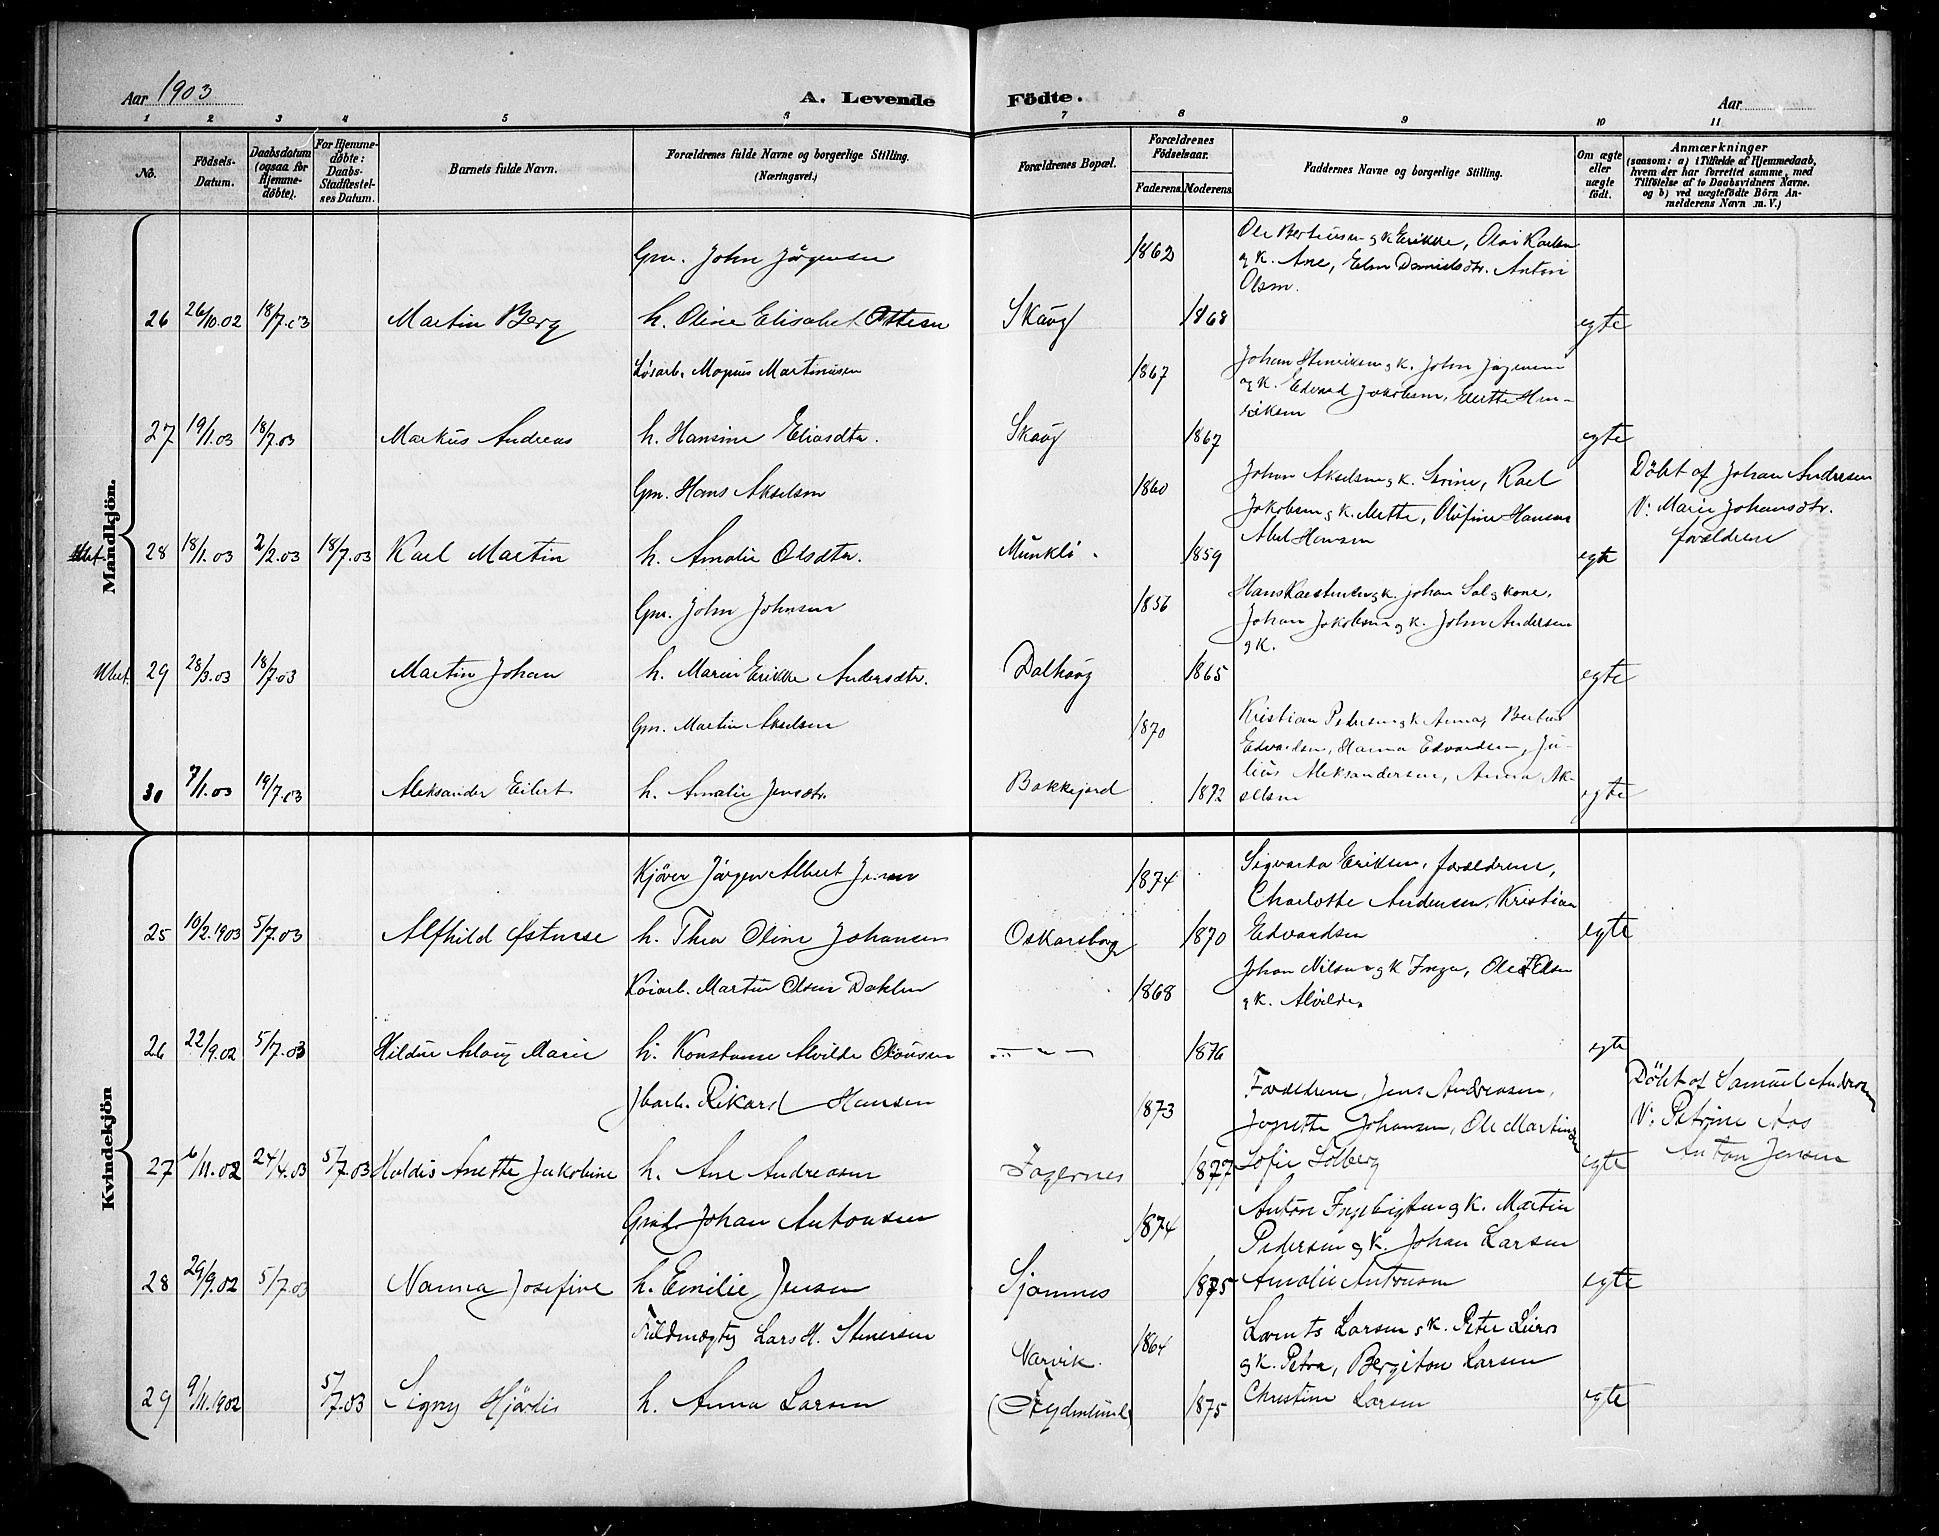 Aar 1903
A. Levende
Födte.
Aar
1 2 3 4 5 6 7 8 9 10 11
No.
Födsels-
Datum.
Daabsdatum
(ogsaa for
Hjemme-
döbte).
For Hjemme-
döbte:
Daabs-
Stadfæstel-
ses Datum.
Barnets fulde Navn.
Forældrenes fulde Navne og borgerlige Stilling.
(Næringsvei.)
Forældrenes Bopæl.
Forældrenes
Födselsaar.
Faderens. Moderens.
Faddernes Navne og borgerlige Stilling.
Om ægte
eller
uægte
födt.
Anmærkninger
(saasom: a) i Tilfælde af Hjemmedaab,
hvem der har forrettet samme, med
Tilföielse af to Daabsvidners Navne.
og b) ved uægtefödte Börn An-
melderens Navn m. V.)
Mandkjön.
Gm. John Jörgensen
1862
Ole Berteusen og k Erikke, Olai Karlsen
og k. Ane, Elen Danielsdtr. Anton
Olsen.
26 26/10.02 18/7.03 Martin Berg h. Oline Elisabet Ottesen Skaug 1868 egte
Løsarb. Magnus Martinusen
1867
Johan Henriksen og k. John Jørgensen
og k. Edvard Jakobsen, Merthe Hen-
riksen
27 19/1.03 18/7.03 Markus Andreas h. Hansine Eliasdtr. Skaug 1867 egte
Gm. Hans Akselsen
1860
Johan Akselsen og k. Serine, Karl
Jakobsen og k. Mette, Olufine Hansen
Abel Hansen
Döbt af Johan Andresen
V: Marie Johansdtr.
forældrene
28 18/1.03 2/2.03 18/7.03 Karl Martin h. Amalie Olsdtr. Munkli. 1859 egte
Gm. John Johnsen
1856
Johan Sal og kone,
Johan Jakobsen og k. John Andersen
og k.
29 28/3.03 18/7.03 Martin Johan h. Maren Erikke Andersdtr. Dalhaug 1865 egte
Gm. Martin Akselsen
1870
Kristian Pedersen og k Anna, Berteus
Edvardsen, Hanna Edvardsen, Ju-
lius Aleksandersen, Anna Ak-
selsen
30 7/1.03 19/7.03 Aleksander Eilert h. Amalie Jensdtr. Bakkejord 1872 egte
Kvindekjön
Kjörer Jörgen Albert Jensen
1874
Sigvarda Eriksen, forældrene,
Charlotte Andersen, Kristian
25 10/2.1903 5/7.03 Alfhild Østnese h. Thea Oline Johansen Oskarsborg 1870 Edvardsen egte
Martin Olsen Dahlen
1868
Johan Nilsen og k Inga, Ole Olsen
og k. Alvilde
26 22/9.02 5/7.03 Hildur Aslaug Marie h. Konstanse Alvilde - " - 1876 egte
Jbarb. Rikard Hansen
1873
Forældrene, Jens Andreasen,
Jonette Johansen, Ole Martinsen
Döbt af Samuel Andreasen
V: Petrine Aas
Anton Jensen
27 6/11.02 24/4.03 5/7.03 Haldis Anette Jakobine h. Ane Andreasen Fagernes 1877 Sofie Solberg egte
Grd. Johan Antonsen
1874
Anton Ingebrigtsen og k. Martin
Pedersen og k. Johan Larsen
28 29/9.02 5/7.03 Nanna Josefine h. Emilie Jensen Sjomnes 1875 Amalie Antonsen egte
Fuldmægtig Lars H. Stenersen
Narvik.
1864
Lorents Larsen og k. Peter
og k. Petra, Bergiton Larsen
29 9/11.1902 5/7.03 Signy Hjördis h. Anna Larsen (Frydenlund) 1875 Christine Larsen egte